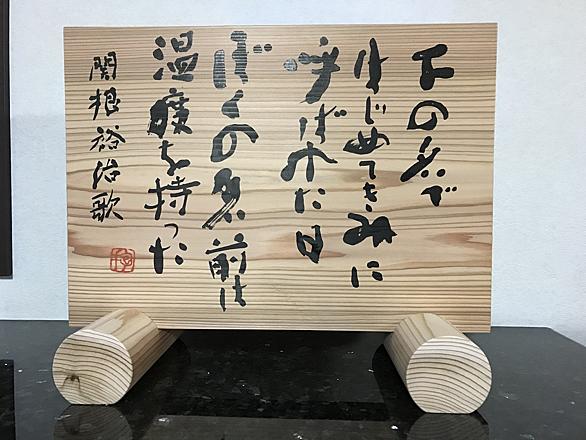 下の名で
はじめてきみに
呼ばれた日
ぼくの名前は
温度を持った
関根裕治歌